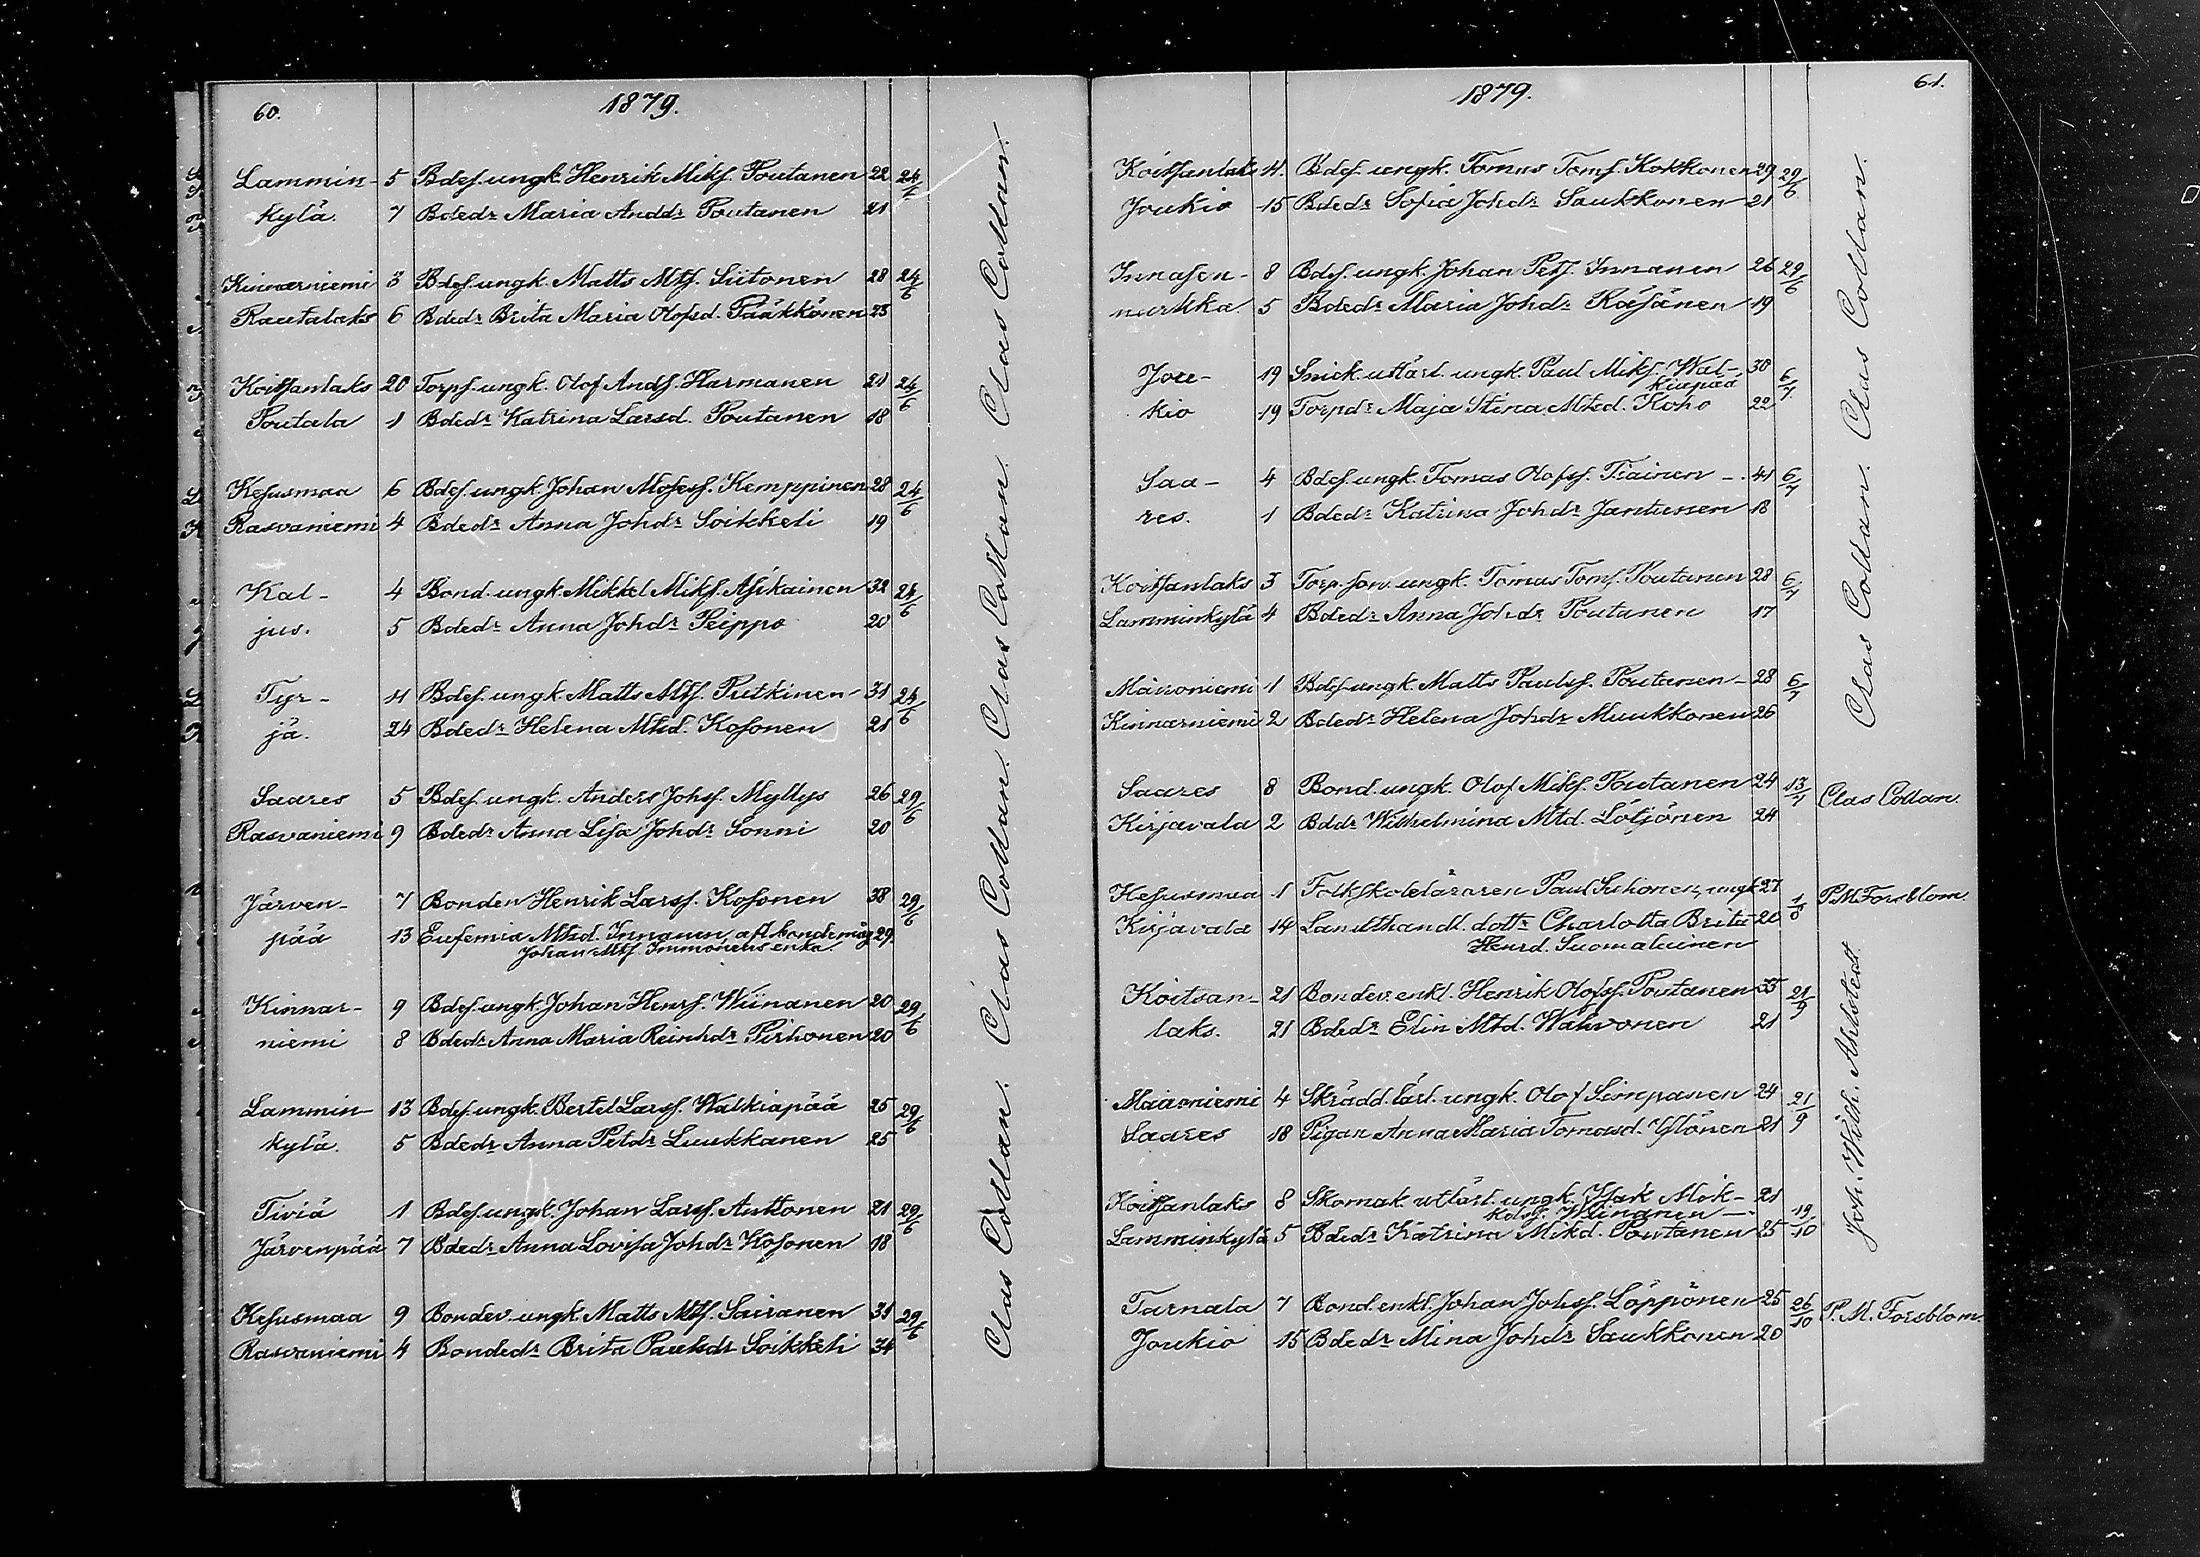 60.
1879.
Lammin- 5 Bdes. ungk. Henrik Miks. Poutanen 22 24/6
kylä. 7 Bdedr Maria Anddr Poutanen 21
Kinnarniemi 3 Bdes. ungk. Matts Mts. Siitonen 28 24/6
Rautalaks 6 Bdedr Brita Maria Olofsd. Pääkkönen 23
Koitsanlaks 20 Torps. ungk. Olof Ands. Harmanen 21 24/6
Poutala 1 Bdedr Katrina Larsd. Poutanen 18
Kesusmaa 6 Bdes. ungk. Johan Moses. Kemppinen 28 24/6
Rasvaniemi 4 Bdedr Anna Johdr Soikkeli 19
Kal- 4 Bond. ungk. Mikkel Miks. Asikainen 32 24/6
jus. 5 Bdedr Anna Johdr Peippo 20
Tyr- 11 Bdes. ungk. Matts Mts. Putkinen 31 24/6
jä. 24 Bdedr Helena Mtsd. Kosonen 21
Saares 5 Bdes. ungk. Anders Johss. Myllys 26 29/6
Rasvaniemi 9 Bdedr Anna Lisa Johdr Sonni 20
Järven- 7 Bonden Henrik Larss. Kosonen 38 29/6
pää 13 Eufemia Mtsd. Innanen, afl. bondemåg 29
Johan Mts. Immonens enka.
Kinnar- 9 Bdes. ungk. Johan Henrs. Wiinanen 20 29/6
niemi 8 Bdedr Anna Maria Reinhdr Pirhonen 20
Lammin- 13 Bdes. ungk. Bertel Larss. Walkiapää 25 29/6
kylä. 5 Bdedr Anna Petdr Luukkanen 25
Tiviä 1 Bdes. ungk. Johan Larss. Anttonen 21 29/6
Järvenpää 7 Bdedr Anna Lovisa Johdr Kosonen 18
Kesusmaa 9 Bonden ungk. Matts Mts. Sairanen 31 29/6
Rasvaniemi 4 Bondedr Brita Paulsdr Soikkeli 34
Clas Collan. Clas Collan. Clas Collan. Clas Collan. Clas Collan.
61.
1879.
Koitsanlaks 11. Bdes. ungk. Tomas Toms. Kokkonen 29 29/6
Joukio 15 Bdedr Sofia Johdr Saukkonen 21
Innasen- 8 Bdes. ungk. Johan Pets. Innanen 26 29/6
nurkka. 5 Bdedr Maria Johdr Räsänen 19
Jou- 19 Snick. utlärl. ungk. Paul Miks. Wal- 30 6/7
kiapää
kio 19 Torpdr Maja Stina Mtsd. Koho 22
Saa- 4 Bdes. ungk. Tomas Olofs. Tiainen - 41 6/7
res. 1 Bdedr Katrina Johdr Jantunen 18
Koitsanlaks 3 Torp. son. ungk. Tomas Toms. Poutanen 28 6/7
Lamminkylä 4 Bdedr Anna Johdr Poutanen 17
Mäironiemi 1 Bdes. ungk. Matts Paulss. Poutanen - 28 6/7
Kinnarniemi 2 Bdedr Helena Johdr Muukkonen 26
Saares 8 Bond. ungk. Olof Miks. Poutanen 24 13/7 Clas Collan.
Kirjavala 2 Bddr Wilhelmina Mtd. Lötjönen 24
Kesusmaa 1 Folkskoleläraren Paul Suhonen, ungk. 27 1/8 P. M. Forsblom.
Kirjavala 14 Landthandl. dottr Charlotta Brita 20
Henrd. Suomalainen
Koitsan- 21 Bonden enkl. Henrik Olofss. Poutanen 35 21/9
laks. 21 Bdedr Elin Mtd. Wahvonen 21
Määrniemi 4 Skrädd. lärl. ungk. Olof Simpanen 24 21/9
Saares 18 Pigan Anna Maria Tomasd. Ylönen 21
Koitsanlaks 8 Skomak. utlärl. ungk. Isak Mik- 21 19/10
kels. Wiinanen -
Lamminkylä 5 Bdedr Katrina Mikd. Poutanen 25
Tarnala 7 Bond. enkl. Johan Johss. Löppönen 25 26/10 P. M. Forsblom.
Joukio 15 Bdedr Mina Johdr Saukkonen 20
Clas Collan. Clas Collan. Clas Collan.
Joh. Wilh. Ahlstedt.